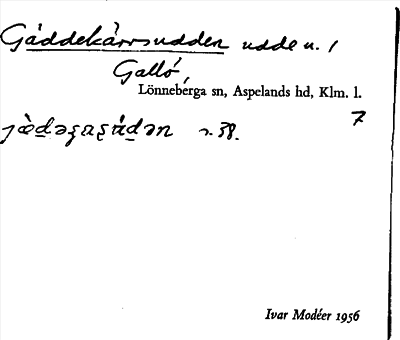 Gäddekärrsudden udde u. /
Gallö,
Lönneberga sn, Aspelands hd, Klm. l.
7
38.
Ivar Modéer 1956